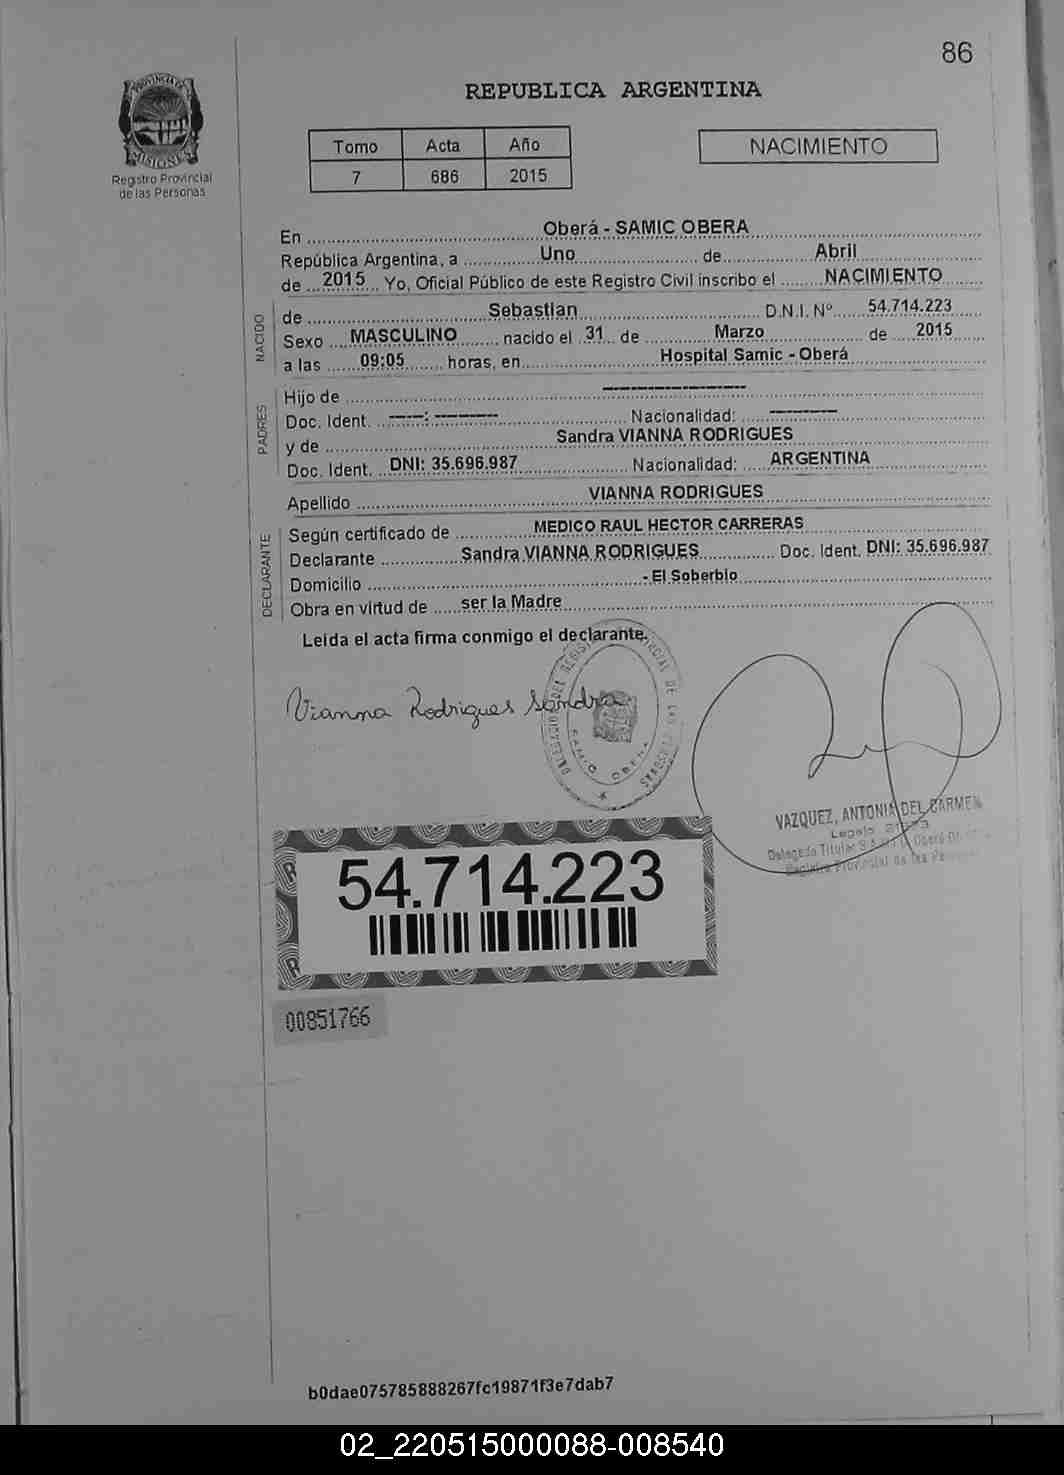 86
PROVINCIA DE
MISIONES
Registro Provincial
de las Personas
REPUBLICA ARGENTINA
Tomo Acta Año
7 686 2015
NACIMIENTO
En Oberá - SAMIC OBERA
República Argentina, a Uno de Abril
de 2015 Yo, Oficial Público de este Registro Civil inscribo el NACIMIENTO
NACIDO
de Sebastian D.N.I. Nº 54.714.223
Sexo MASCULINO nacido el 31 de Marzo de 2015
a las 09:05 horas, en Hospital Samic - Oberá
PADRES
Hijo de --------------------
Doc. Ident. -----: --------- Nacionalidad: ----------
y de Sandra VIANNA RODRIGUES
Doc. Ident. DNI: 35.696.987 Nacionalidad: ARGENTINA
Apellido VIANNA RODRIGUES
DECLARANTE
Según certificado de MEDICO RAUL HECTOR CARRERAS
Declarante Sandra VIANNA RODRIGUES Doc. Ident. DNI: 35.696.987
Domicilio - El Soberbio
Obra en virtud de ser la Madre
Leída el acta firma conmigo el declarante.
Vianna Rodrigues Sandra
SAMIC OBERA
VAZQUEZ, ANTONIA DEL CARMEN
Legajo
Delegada Titular
Registro Provincial de las
54.714.223
00851766
b0dae075785888267fc19871f3e7dab7
02_220515000088-008540